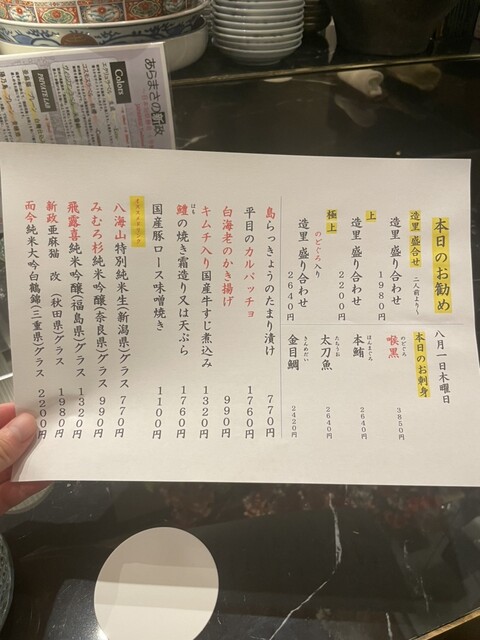 本日のお勧め
八月一日木曜日
造里 盛合せ 二人前より〜
造里 盛り合わせ
1980円
上
造里 盛り合わせ
2200円
極上
のどぐろ入り
造里 盛り合わせ
2640円
本日のお刺身
のどぐろ
喉黒
3850円
ほんまぐろ
本鮪
2640円
たちうお
太刀魚
2640円
きんめだい
金目鯛
2420円
島らっきょうのたまり漬け 770円
平目のカルパッチョ 1760円
白海老のかき揚げ 990円
キムチ入り国産牛すじ煮込み 1320円
はも
鱧の焼き霜造り又は天ぷら 1760円
国産豚ロース味噌焼き 1100円
八海山特別純米生(新潟県)グラス 770円
みむろ杉純米吟醸(奈良県)グラス 990円
飛露喜純米吟醸(福島県)グラス 1320円
新政亜麻猫 改 (秋田県)グラス 1980円
而今純米大吟白鶴錦(三重県)グラス 2200円
あらまさの新政
Colors
PRIVATE LAB